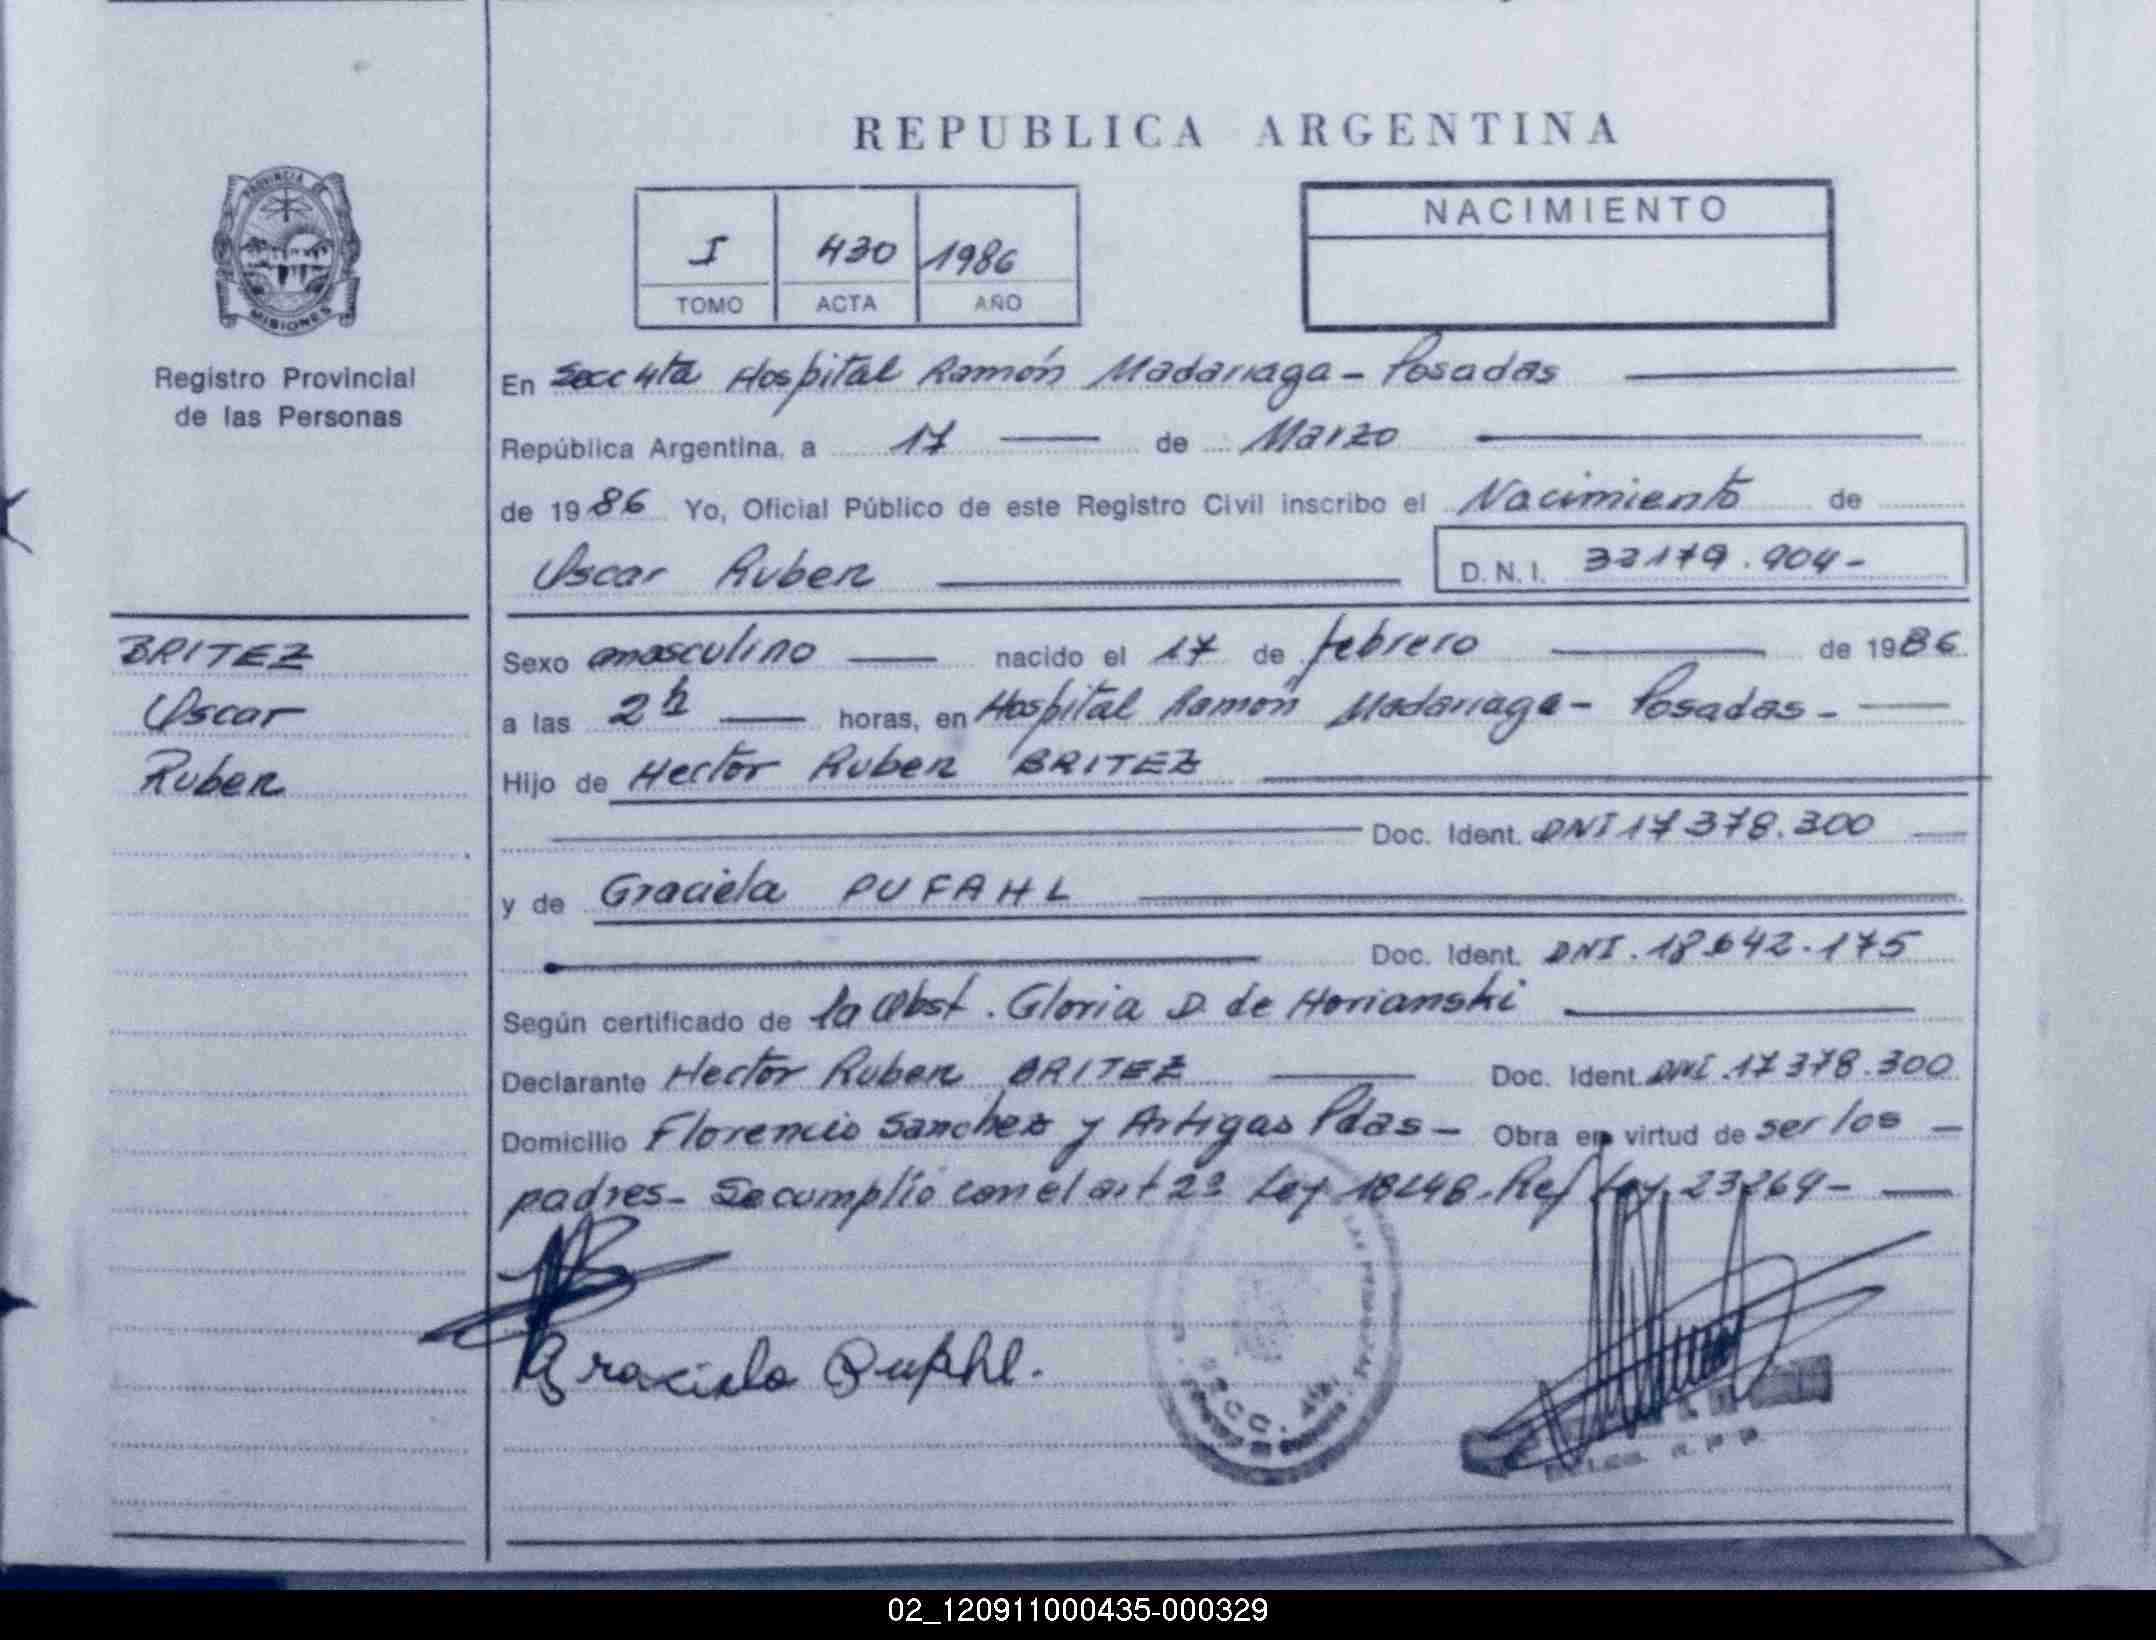 REPUBLICA ARGENTINA
PROVINCIA DE
MISIONES
Registro Provincial
de las Personas
I 430 1986
TOMO ACTA AÑO
NACIMIENTO
En Secc 4ta Hospital Ramón Madariaga - Posadas
República Argentina, a 17 de Marzo
de 1986 Yo, Oficial Público de este Registro Civil inscribo el Nacimiento de
Oscar Ruben D.N.I. 32179.904-
BRITEZ
Oscar
Ruben
Sexo masculino nacido el 17 de febrero de 1986
a las 2h horas, en Hospital Ramón Madariaga - Posadas -
Hijo de Hector Ruben BRITEZ
Doc. Ident. DNI 17378.300
y de Graciela PUFAHL
Doc. Ident. DNI. 18.642.175
Según certificado de la Obst. Gloria D. de Horianski
Declarante Hector Ruben BRITEZ Doc. Ident. DNI. 17378.300
Domicilio Florencio Sanchez y Artigas Pdas - Obra en virtud de ser los
padres - Se cumplió con el art 2º Ley 18248. Ref Ley 23264-
Graciela Pufahl.
SECC. 4ta
02_120911000435-000329